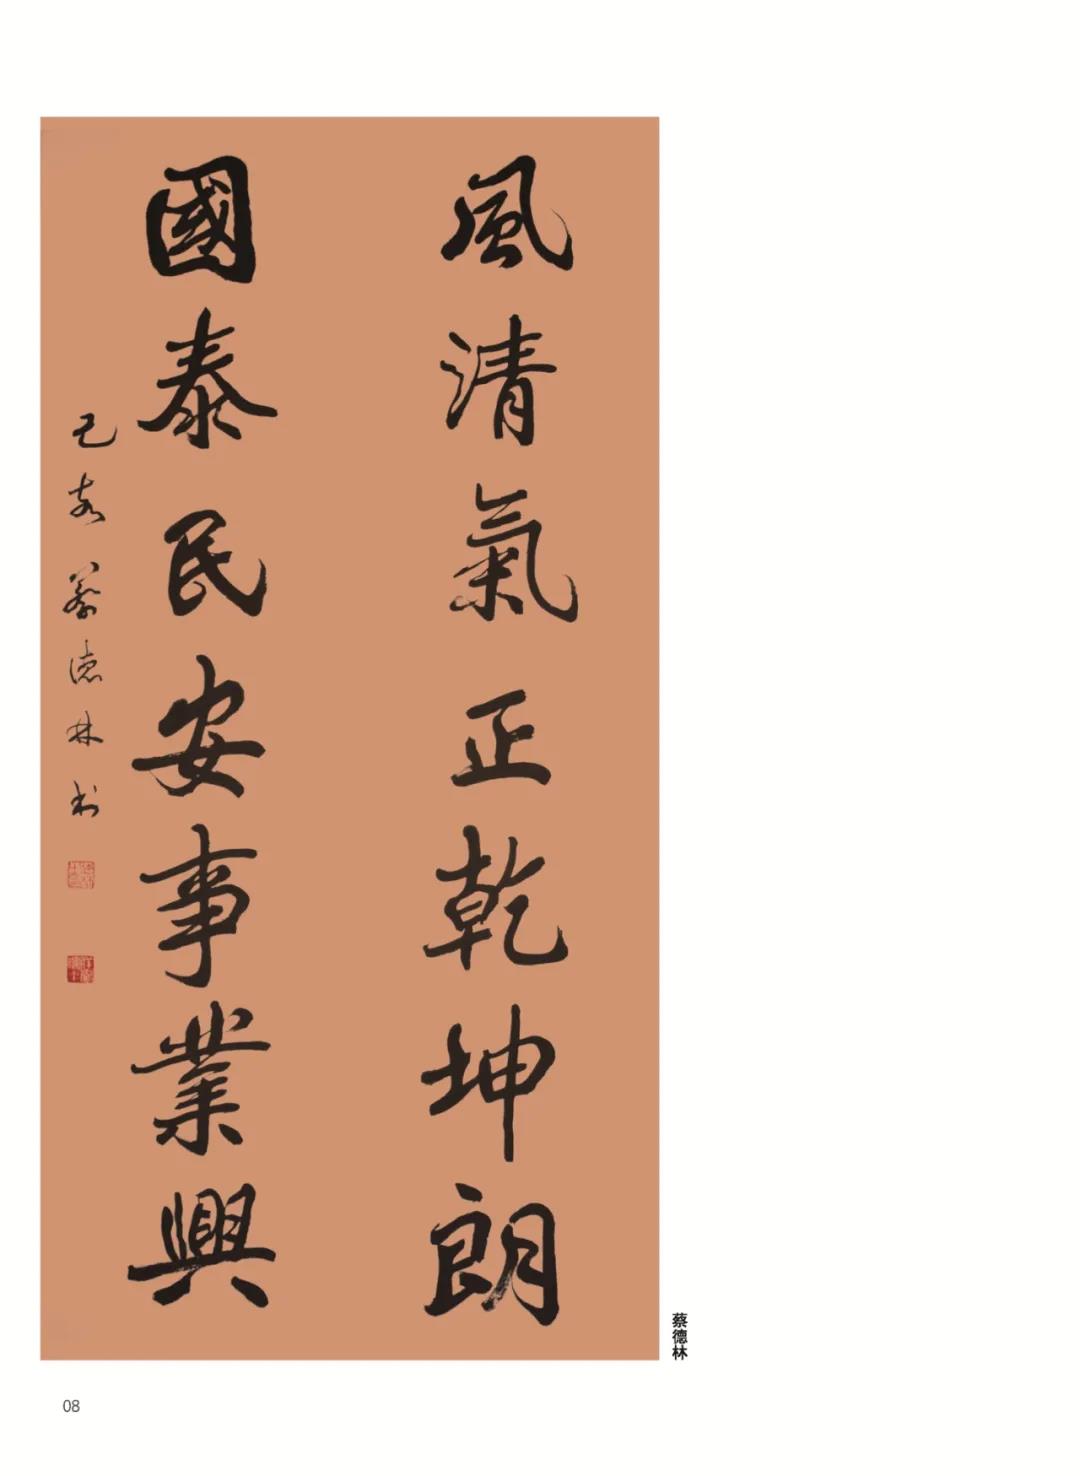 風清氣正乾坤朗
國泰民安事業興
己亥蔡德林书
蔡德林
08